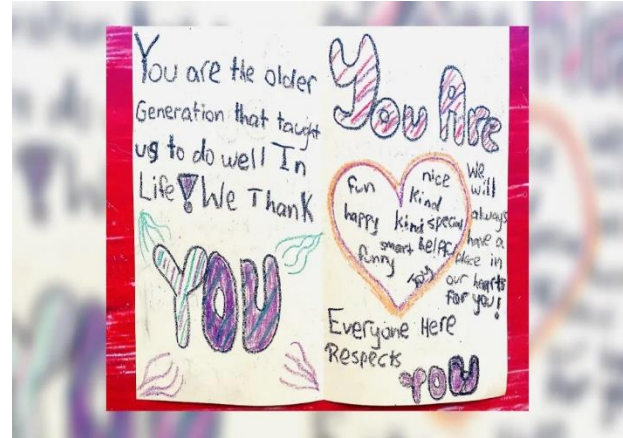 You are the older
Generation that taught
us to do well In
Life! We Thank
YOU
You Are
fun
nice
kind
happy
kind special
smart
funny
We
will
always
have a
place in
our hearts
for you!
Everyone Here
Respects
YOU